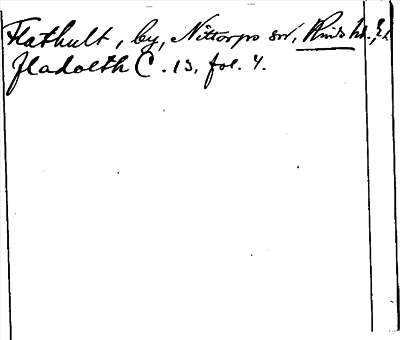 Flathult, by, Nittorps sn, Kinds hd., Äl.
fladolth C. 13, fol. 4.